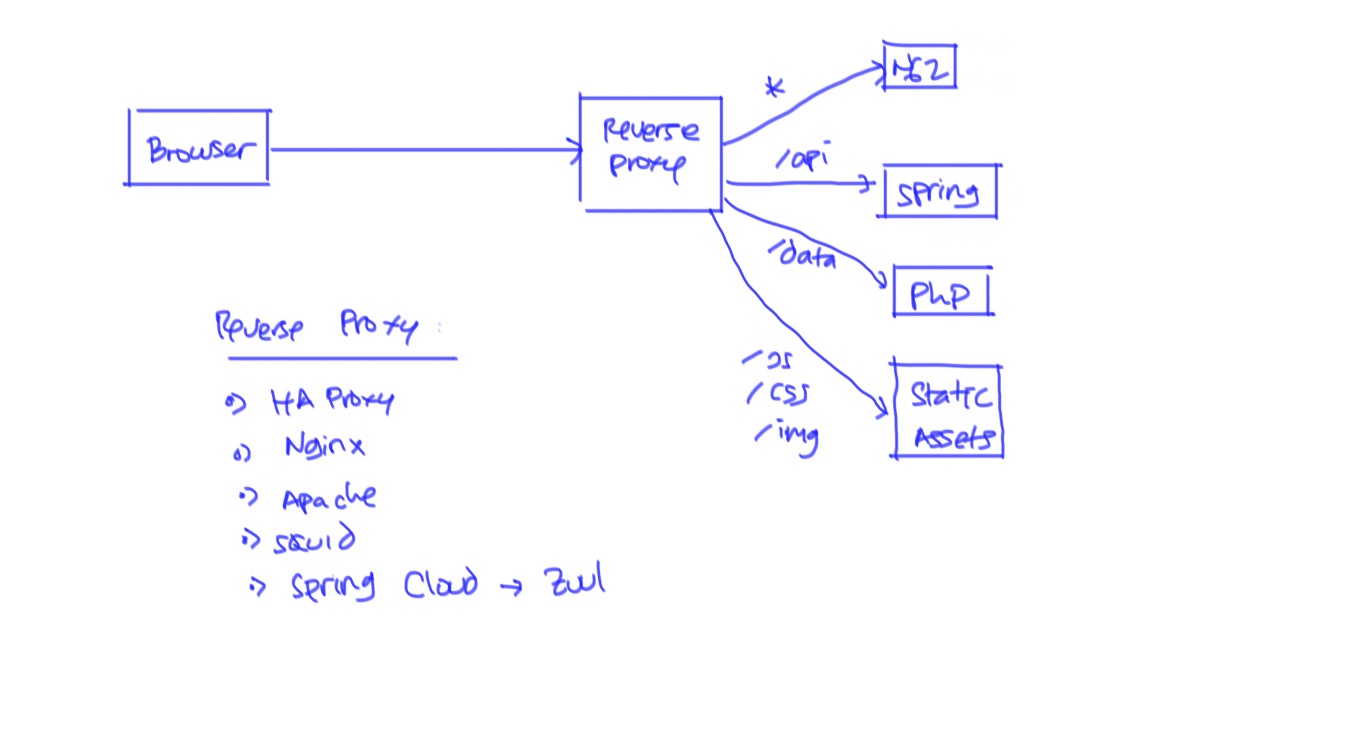 Browser
Reverse
Proxy
*
NG2
/api
Spring
/data
PhP
/JS
/css
/img
Static
Assets
Reverse Proxy :
HA Proxy
Nginx
Apache
Squid
Spring Cloud → Zuul